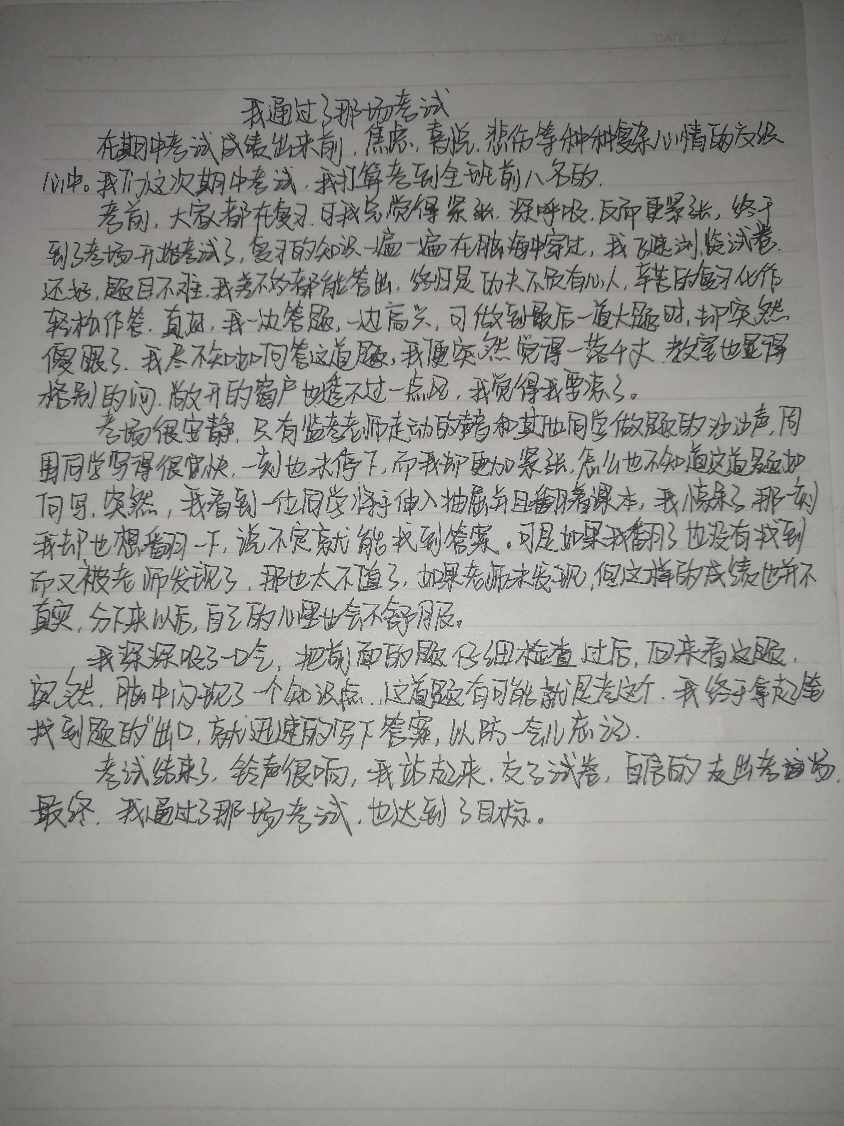 我通过了那场考试
在期中考试成绩出来前,焦虑、喜悦、悲伤等种种复杂心情的交织
心中。我们这次期中考试,我打算考到全班前八名的.
考前,大家都在复习.可我总觉得紧张.深呼吸.反而更紧张,终于
到了考场开始考试了,复习的知识一遍一遍在脑海中穿过,我飞速浏览试卷.
还好,题目不难.我差不多都能答出.终归是功夫不负有心人,辛苦的复习化作
轻松作答.真好,我一边答题,一边高兴,可做到最后一道大题时,却突然
傻眼了.我尽不知如何答这道题,我便突然觉得一落千丈.教室也显得
格别的闷.敞开的窗户也透不过一点风,我觉得我要凉了。
考场很安静.只有监考老师走动的声音和其他同学做题的沙沙声,周
围同学写得很愉快,一刻也未停下,而我却更加紧张,怎么也不知道这道题如
何写.突然,我看到一位同学将手伸入抽屉并且翻着课本,我惊呆了.那一刻
我却也想翻一下,说不定就能找到答案。可是如果我翻了也没有找到
而又被老师发现了,那也太不值了,如果老师未发现,但这样的成绩也并不
真实,分下来以后,自己的心里也会不舒服。
我深深吸了一口气,把前面的题仔细检查过后,回来看这题.
突然.脑中闪现了一个知识点.这道题有可能就是考这个.我终于拿起笔
找到题的"出口,就迅速的写下答案,以防一会儿忘记.
考试结束了,铃声很响,我站起来.交了试卷,自信的走出考场.
最终.我通过了那场考试.也达到了目标。